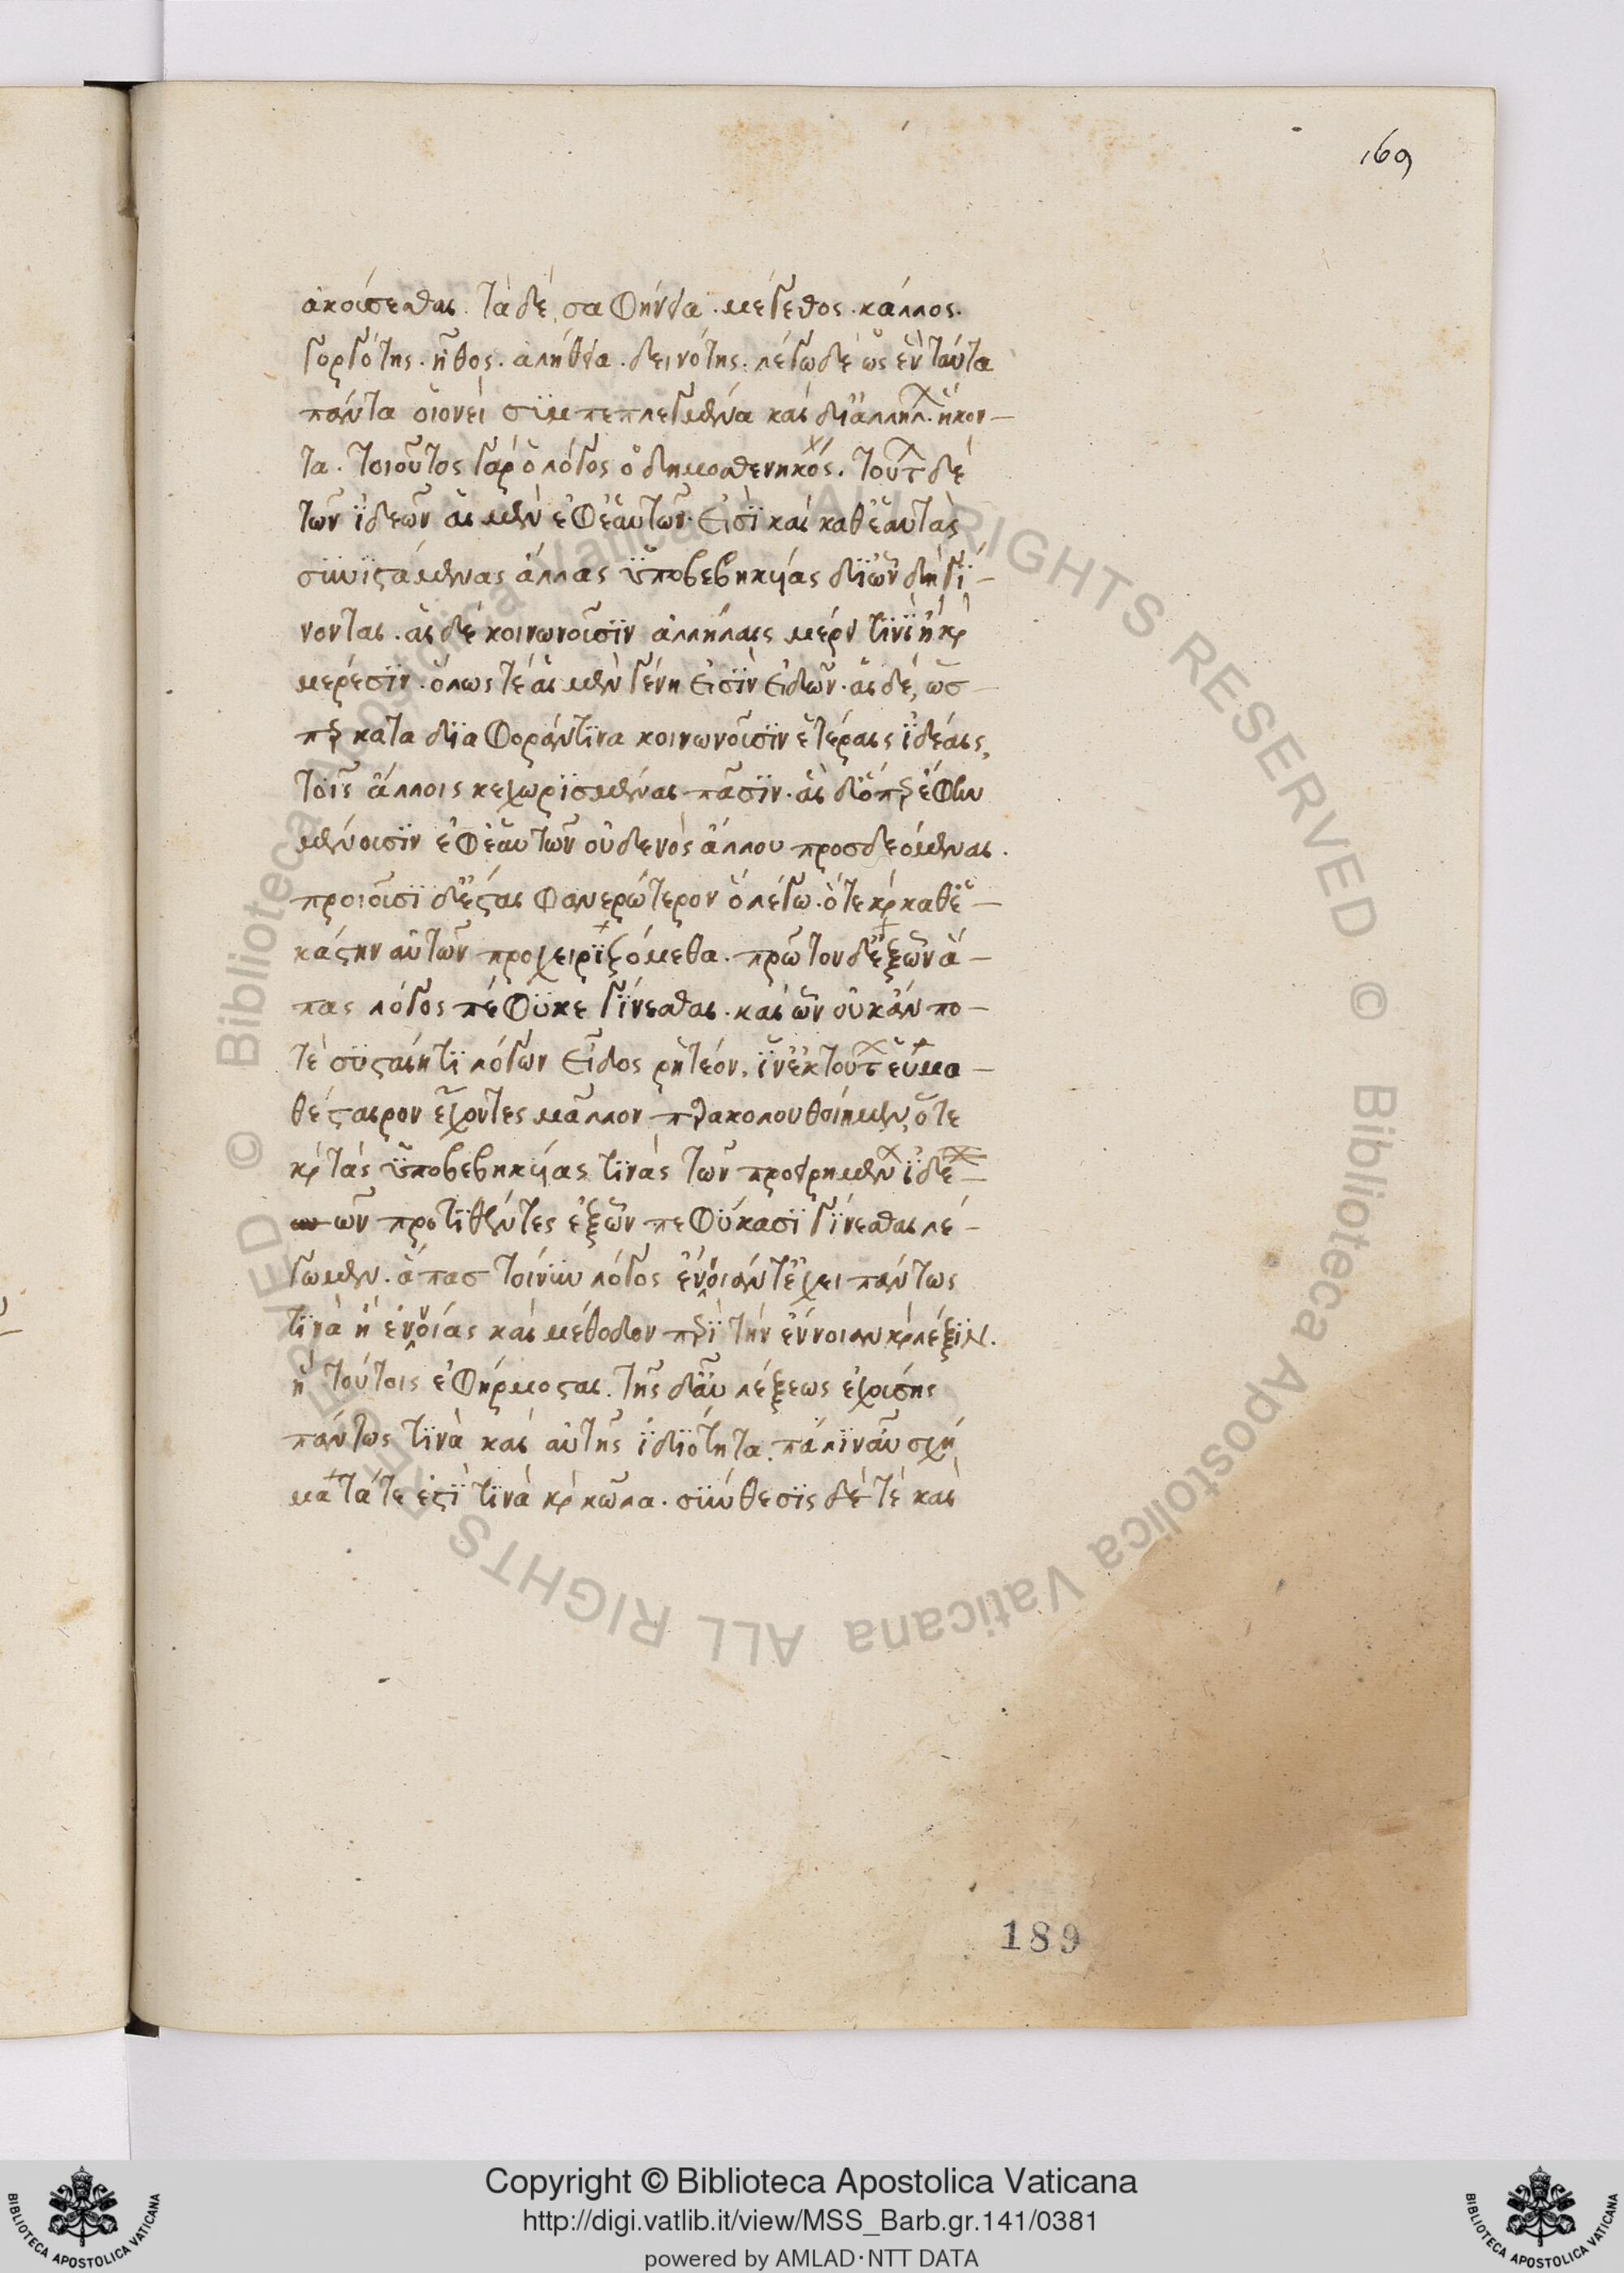 169
ἀκούεσθαι. τὰ δέ, σαφήνεια. μέγεθος. κάλλος.
γοργότης. ἦθος. ἀλήθεια. δεινότης. λέγω δὲ ὡς ἓν ταῦτα
πάντα οἱονεὶ συμπεπλεγμένα καὶ δι' ἀλλήλ. ἥκον-
τα. τοιοῦτος γὰρ ὁ λόγος ὁ δημοσθενηκός. τούτ δὲ
τῶν ἰδεῶν αἱ μὲν ἐφ' ἑαυτῶν εἰσὶ καὶ καθ' ἑαυτὰς
συνιστάμεναι ἄλλας ὑποβεβηκυίας δι' ὧν δὴ γί-
νονται. αἱ δὲ κοινωνοῦσιν ἀλλήλαις μέρει τινὶ ἢ καὶ
μέρεσιν. ὅλως τὲ αἱ μὲν γένη εἰσὶν εἰδῶν. αἱ δέ, ὥσ-
περ κατα διαφοράν τινα κοινωνοῦσιν ἑτέραις ἰδέαις,
τοῖς ἄλλοις κεχωρισμέναι πᾶσιν. αἱ δ' ὅπερ ἔφην
μένουσιν ἐφ' ἑαυτῶν οὐδενὸς ἄλλου προσδεόμεναι.
προϊοῦσι δ' ἔσται φανερώτερον ὃ λέγω. ὅτε καὶ καθ' ἑ-
κάστην αὐτῶν προχειριζόμεθα. πρῶτον δ' ἐξ ὧν ἅ-
πας λόγος πέφυκε γίνεσθαι. καὶ ὧν οὐκ ἄν πο-
τὲ συσταίη τι λόγων εἶδος ῥητέον. ἵν' ἐκ τούτ εὐμα-
θέσταιρον ἔχοντες μᾶλλον παρακολουθοίημεν, ὅτε
καὶ τὰς ὑποβεβηκυίας τινὰς τῶν προειρημέν ἰδε-
ῶν προτιθέντες ἐξ ὧν πεφύκασι γίνεσθαι λέ-
γωμεν. ἅπασ τοίνυν λόγος ἔννοιάν τ' ἔχει πάντως
τινὰ ἢ ἐννοίας καὶ μέθοδον περὶ τὴν ἔννοιαν καὶ λέξιν.
ἣ τούτοις ἐφήρμοσται. τῆς δ' αὖ λέξεως ἐχούσης
πάντως τινὰ καὶ αὐτῆς ἰδιότητα. πάλιν αὖ σχή
ματά τε ἐστὶ τινὰ καὶ κῶλα. σύνθεσις δέ τέ καὶ
189
© Biblioteca Apostolica Vaticana ALL RIGHTS RESERVED © Biblioteca Apostolica Vaticana ALL RIGHTS RESERVED
Copyright © Biblioteca Apostolica Vaticana
http://digi.vatlib.it/view/MSS_Barb.gr.141/0381
powered by AMLAD·NTT DATA
BIBLIOTECA APOSTOLICA VATICANA
BIBLIOTECA APOSTOLICA VATICANA